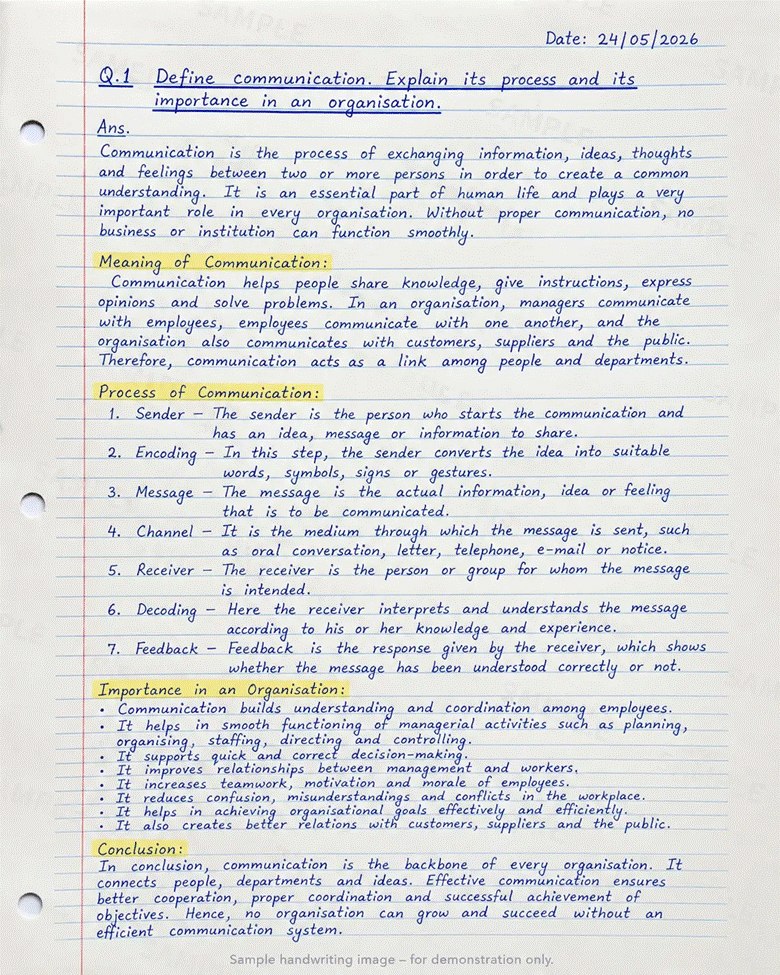 Date: 24/05/2026
Q.1 Define communication. Explain its process and its
importance in an organisation.
Ans.
Communication is the process of exchanging information, ideas, thoughts
and feelings between two or more persons in order to create a common
understanding. It is an essential part of human life and plays a very
important role in every organisation. Without proper communication, no
business or institution can function smoothly.
Meaning of Communication:
Communication helps people share knowledge, give instructions, express
opinions and solve problems. In an organisation, managers communicate
with employees, employees communicate with one another, and the
organisation also communicates with customers, suppliers and the public.
Therefore, communication acts as a link among people and departments.
Process of Communication:
1. Sender – The sender is the person who starts the communication and
has an idea, message or information to share.
2. Encoding – In this step, the sender converts the idea into suitable
words, symbols, signs or gestures.
3. Message – The message is the actual information, idea or feeling
that is to be communicated.
4. Channel – It is the medium through which the message is sent, such
as oral conversation, letter, telephone, e-mail or notice.
5. Receiver – The receiver is the person or group for whom the message
is intended.
6. Decoding – Here the receiver interprets and understands the message
according to his or her knowledge and experience.
7. Feedback – Feedback is the response given by the receiver, which shows
whether the message has been understood correctly or not.
Importance in an Organisation:
• Communication builds understanding and coordination among employees.
• It helps in smooth functioning of managerial activities such as planning,
organising, staffing, directing and controlling.
• It supports quick and correct decision-making.
• It improves relationships between management and workers.
• It increases teamwork, motivation and morale of employees.
• It reduces confusion, misunderstandings and conflicts in the workplace.
• It helps in achieving organisational goals effectively and efficiently.
• It also creates better relations with customers, suppliers and the public.
Conclusion:
In conclusion, communication is the backbone of every organisation. It
connects people, departments and ideas. Effective communication ensures
better cooperation, proper coordination and successful achievement of
objectives. Hence, no organisation can grow and succeed without an
efficient communication system.
Sample handwriting image – for demonstration only.